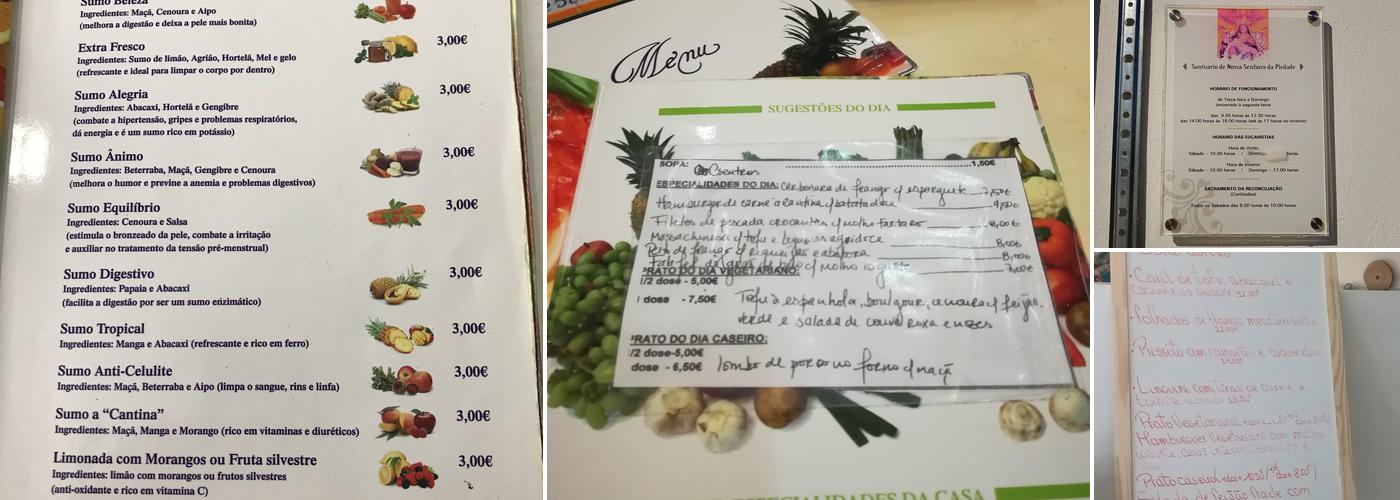 Sumo Beleza
Ingredientes: Maçã, Cenoura e Aipo
(melhora a digestão e deixa a pele mais bonita)
Extra Fresco 3,00€
Ingredientes: Sumo de limão, Agrião, Hortelã, Mel e gelo
(refrescante e ideal para limpar o corpo por dentro)
Sumo Alegria 3,00€
Ingredientes: Abacaxi, Hortelã e Gengibre
(combate a hipertensão, gripes e problemas respiratórios,
dá energia e é um sumo rico em potássio)
Sumo Ânimo 3,00€
Ingredientes: Beterraba, Maçã, Gengibre e Cenoura
(melhora o humor e previne a anemia e problemas digestivos)
Sumo Equilíbrio 3,00€
Ingredientes: Cenoura e Salsa
(estimula o bronzeado da pele, combate a irritação
e auxiliar no tratamento da tensão pré-menstrual)
Sumo Digestivo 3,00€
Ingredientes: Papaia e Abacaxi
(facilita a digestão por ser um sumo enzimático)
Sumo Tropical 3,00€
Ingredientes: Manga e Abacaxi (refrescante e rico em ferro)
Sumo Anti-Celulite 3,00€
Ingredientes: Maçã, Beterraba e Aipo (limpa o sangue, rins e linfa)
Sumo a “Cantina” 3,00€
Ingredientes: Maçã, Manga e Morango (rico em vitaminas e diuréticos)
Limonada com Morangos ou Fruta silvestre 3,00€
Ingredientes: limão com morangos ou frutos silvestres
(anti-oxidante e rico em vitamina C)
Menu
SUGESTÕES DO DIA
SOPA: Coentros 1,60€
ESPECIALIDADES DO DIA: Carbonara de frango c/ esparguete 7,50€
Hamburger de carne à cantina c/ batata doce 9,50€
Filetes de pescada crocantes c/ molho tártaro 8,00€
Massa chinesa c/ tofu e legumes agridoce 8,00€
Peito de frango c/ requeijão e abóbora 8,00€
Falafel de grão de bico c/ molho iogurte 7,00€
PRATO DO DIA VEGETARIANO:
1/2 dose - 5,00€
1 dose - 7,50€ Tofu à espanhola, boulgour, cenoura c/ feijão
verde e salada de couve roxa e nozes
PRATO DO DIA CASEIRO:
1/2 dose-5,00€
dose - 6,50€ lombo de porco no forno c/ maçã
ESPECIALIDADES DA CASA
Santuário de Nossa Senhora da Piedade
HORÁRIO DE FUNCIONAMENTO
de Terça feira a Domingo
(encerrado à segunda feira)
das 9.00 horas às 12.30 horas
das 14.00 horas às 18.00 horas (até às 17 horas no Inverno)
HORÁRIO DAS EUCARISTIAS
Hora de Verão
Sábado - 10.00 horas / Domingo horas
Hora de Inverno
Sábado - 10.00 horas / Domingo - 17.00 horas
SACRAMENTO DA RECONCILIAÇÃO
(Confissões)
Todos os Sábados das 9.00 horas às 10.00 horas
Caril de tofu, abacaxi e
cogumelos
Folhados de frango mediterrânico
Rissoto com camarão e cogumelos
Linguini com tiras de carne e
tomate
Prato Vegetariano
Hamburguer Vegetariano com molho
Prato caseiro dose 1/2 dose
Salada de feijão frade com